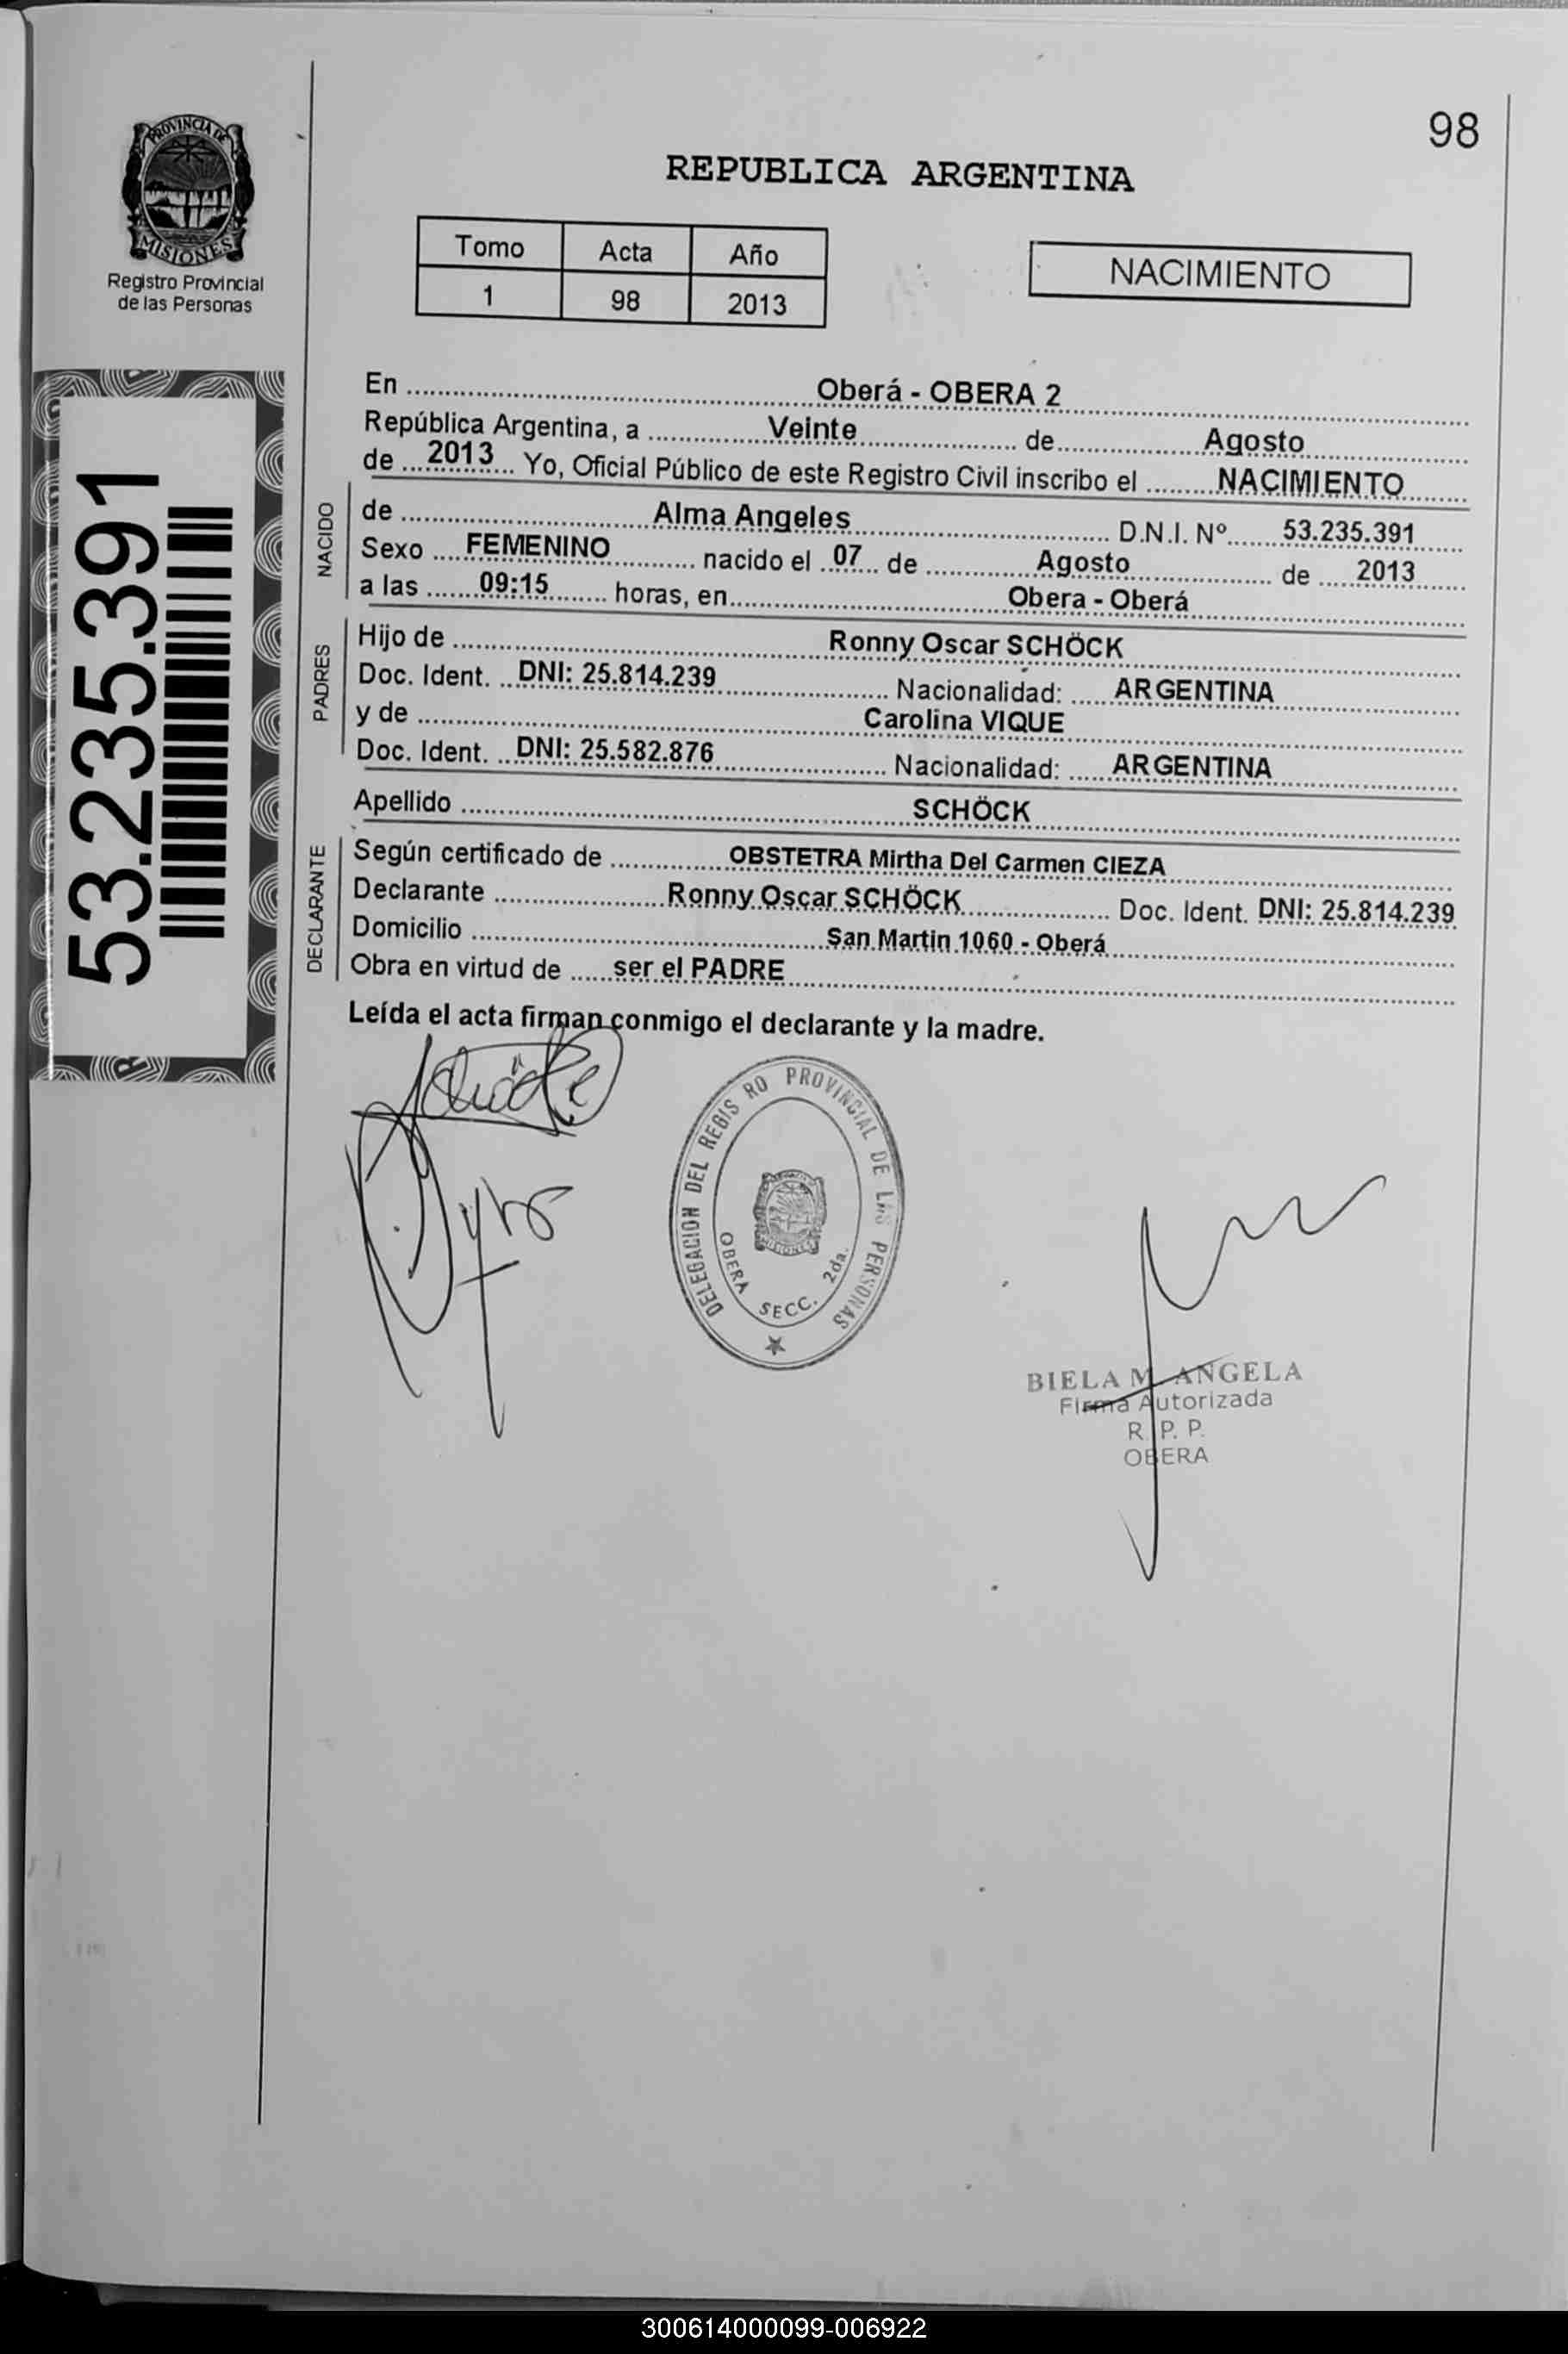 98
PROVINCIA DE
MISIONES
Registro Provincial
de las Personas
REPUBLICA ARGENTINA
Tomo Acta Año
1 98 2013
NACIMIENTO
53.235.391
En Oberá - OBERA 2
República Argentina, a Veinte de Agosto
de 2013 Yo, Oficial Público de este Registro Civil inscribo el NACIMIENTO
NACIDO
de Alma Angeles D.N.I. Nº 53.235.391
Sexo FEMENINO nacido el 07 de Agosto de 2013
a las 09:15 horas, en Obera - Oberá
PADRES
Hijo de Ronny Oscar SCHÖCK
Doc. Ident. DNI: 25.814.239 Nacionalidad: ARGENTINA
y de Carolina VIQUE
Doc. Ident. DNI: 25.582.876 Nacionalidad: ARGENTINA
Apellido SCHÖCK
DECLARANTE
Según certificado de OBSTETRA Mirtha Del Carmen CIEZA
Declarante Ronny Oscar SCHÖCK Doc. Ident. DNI: 25.814.239
Domicilio San Martin 1060 - Oberá
Obra en virtud de ser el PADRE
Leída el acta firman conmigo el declarante y la madre.
DELEGACION DEL REGIS RO PROVINCIAL DE LAS PERSONAS
MISIONES
OBERA SECC. 2da.
BIELA M. ANGELA
Firma Autorizada
R. P. P.
OBERA
300614000099-006922